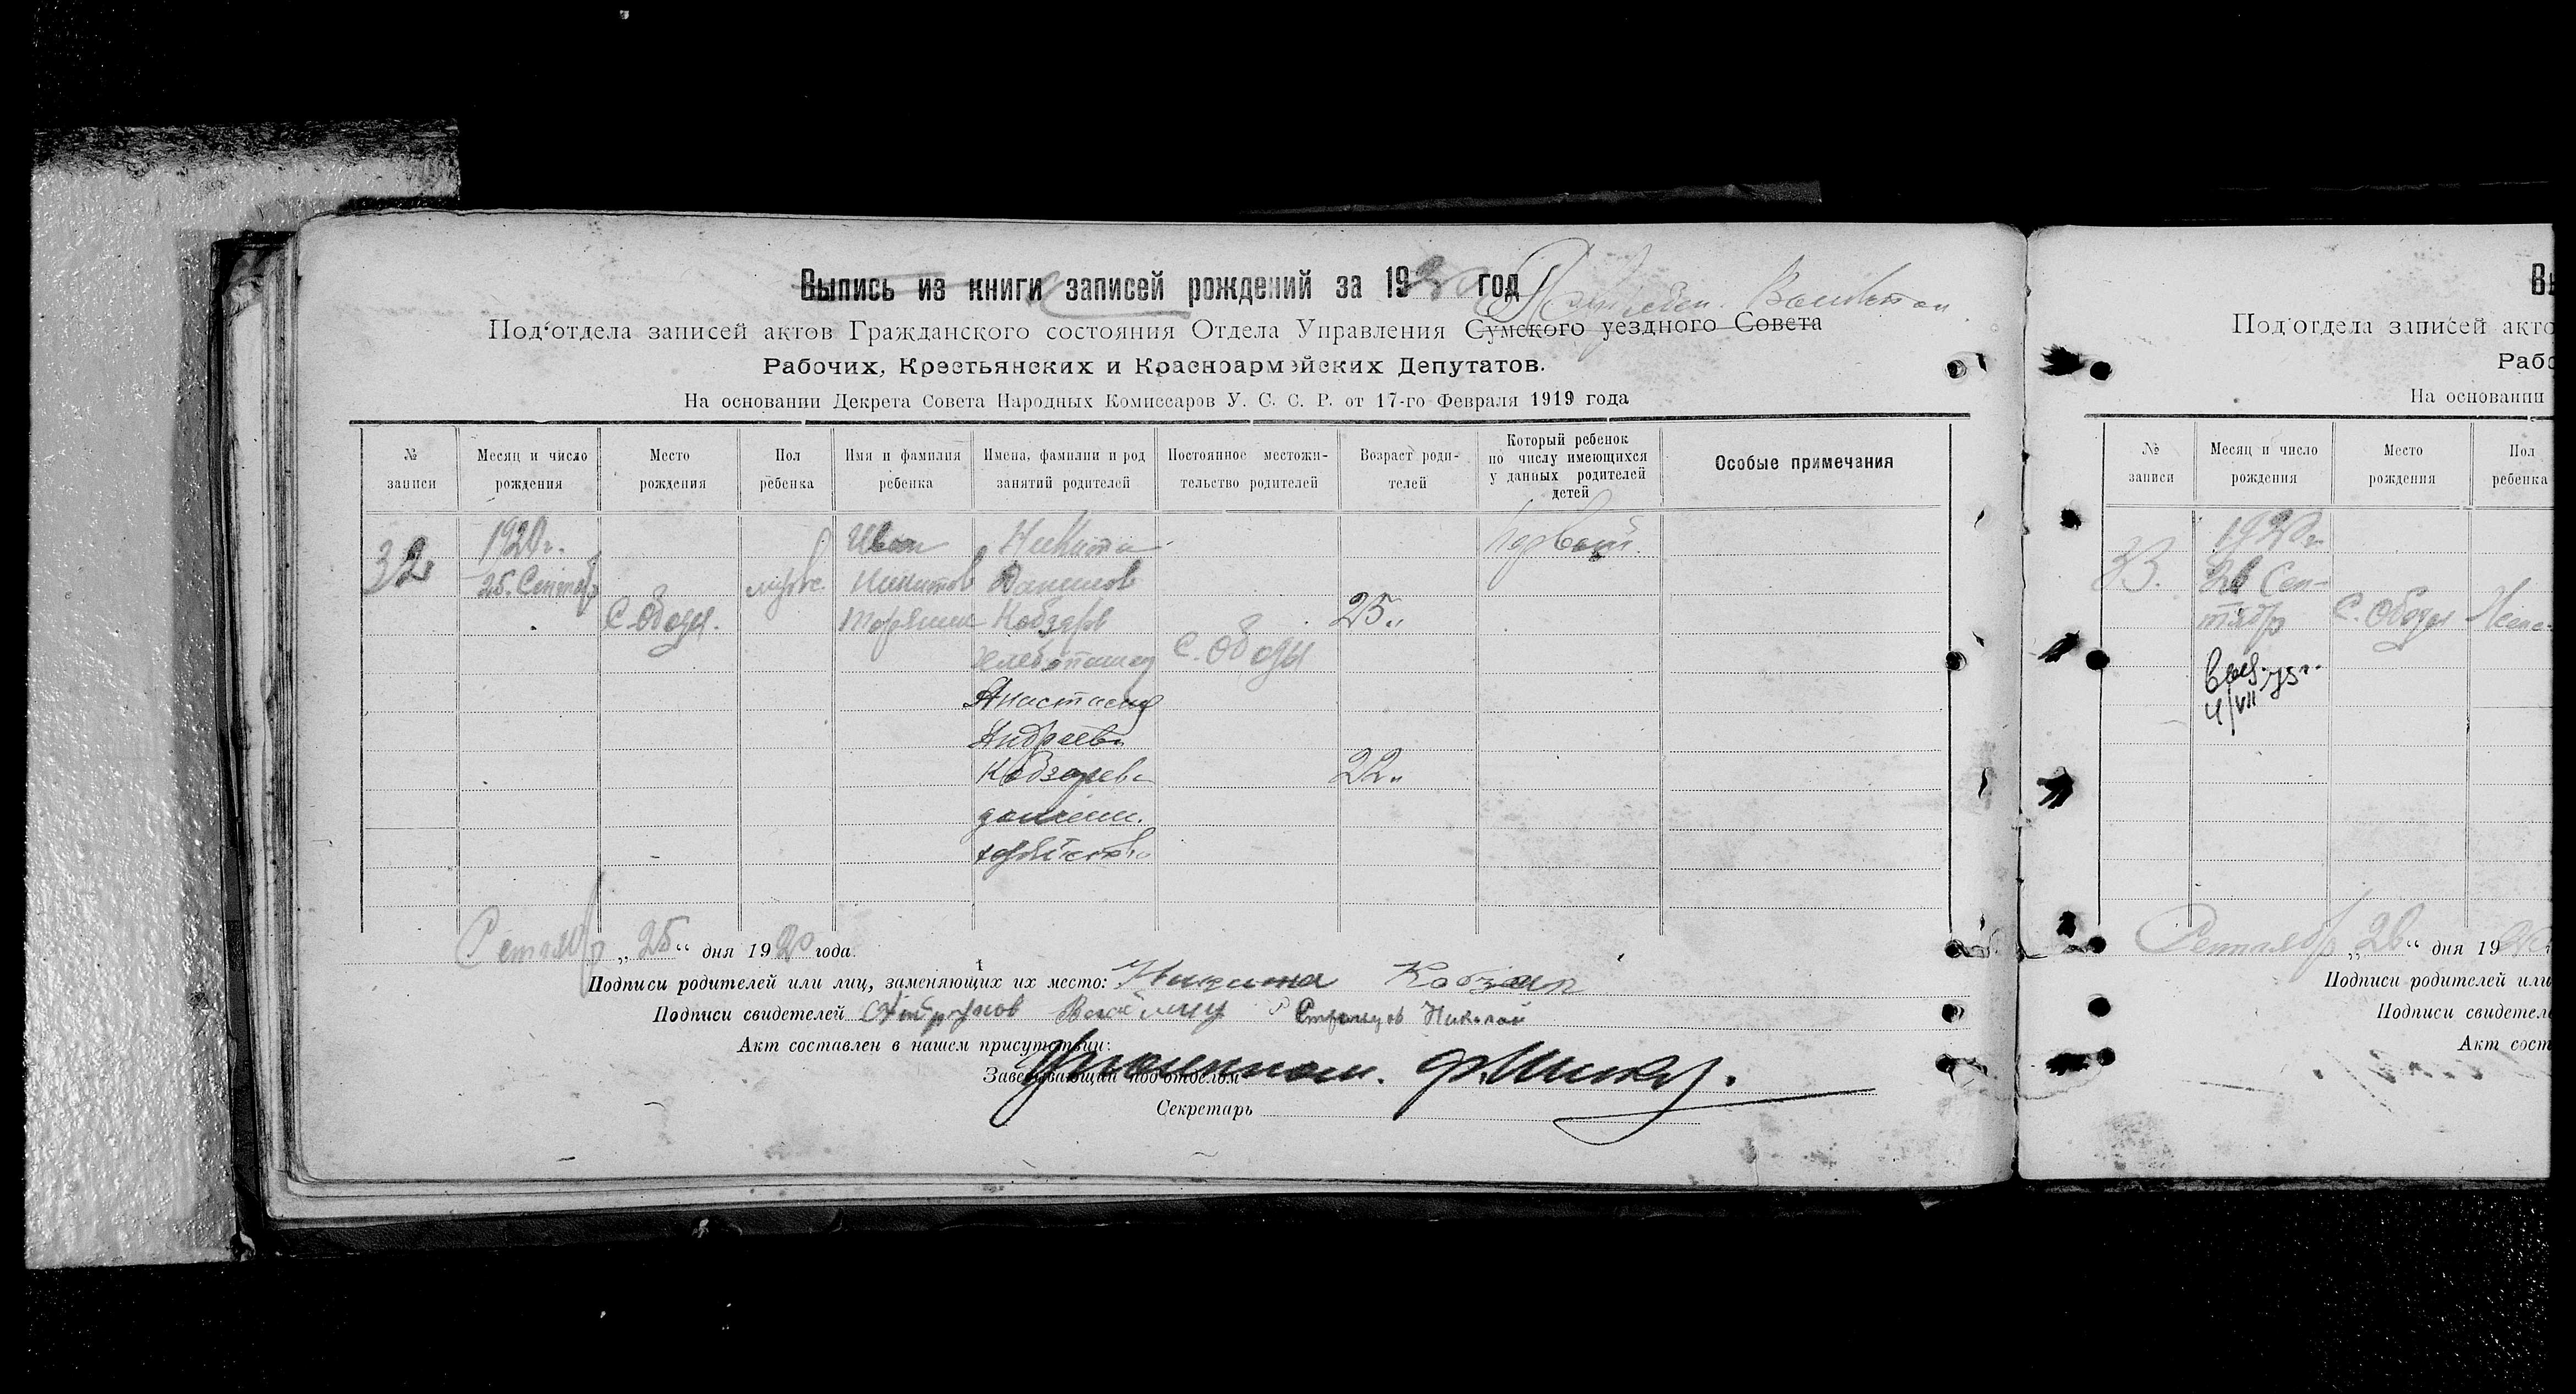 Выпись из книги записей рождений за 1920 год
Под'отдела записей актов Гражданского состояния Отдела Управления Сумского уездного Совета
Рабочих, Крестьянских и Красноармейских Депутатов.
На основании Декрета Совета Народных Комиссаров У. С. С. Р. от 17-го Февраля 1919 года
№ записи
Месяц и число рождения
Место рождения
Пол ребенка
Имя и фамилия ребенка
Имена, фамилии и род занятий родителей
Постоянное местожительство родителей
Возраст родителей
Который ребенок по числу имеющихся у данных родителей детей
Особые примечания
32
1920 г.
25. Сентяб
С. Ободы.
муж.
Иван
Никитов
Никита
Данилов
Кобзарь
хлебопашец
Анастасия
Андреева
Кобзарева
домашн.
хозяйство
С. Ободы
25..
22..
первый.
Сентябр „25“ дня 1920 года.
Подписи родителей или лиц, заменяющих их место: Никита Кобзар
Подписи свидетелей Николай
Акт составлен в нашем присутствии:
Заведывающий под'отделом
Секретарь
Под'отдела записей акто
Рабо
На основании
№ записи
Месяц и число рождения
Место рождения
Пол ребенка
33.
1920 г.
26 Сен-
тябр
С. Ободы
Жен.
4/VII 75 г.
Сентябр „26“ дня 1920
Подписи родителей или
Подписи свидетел
Акт сост